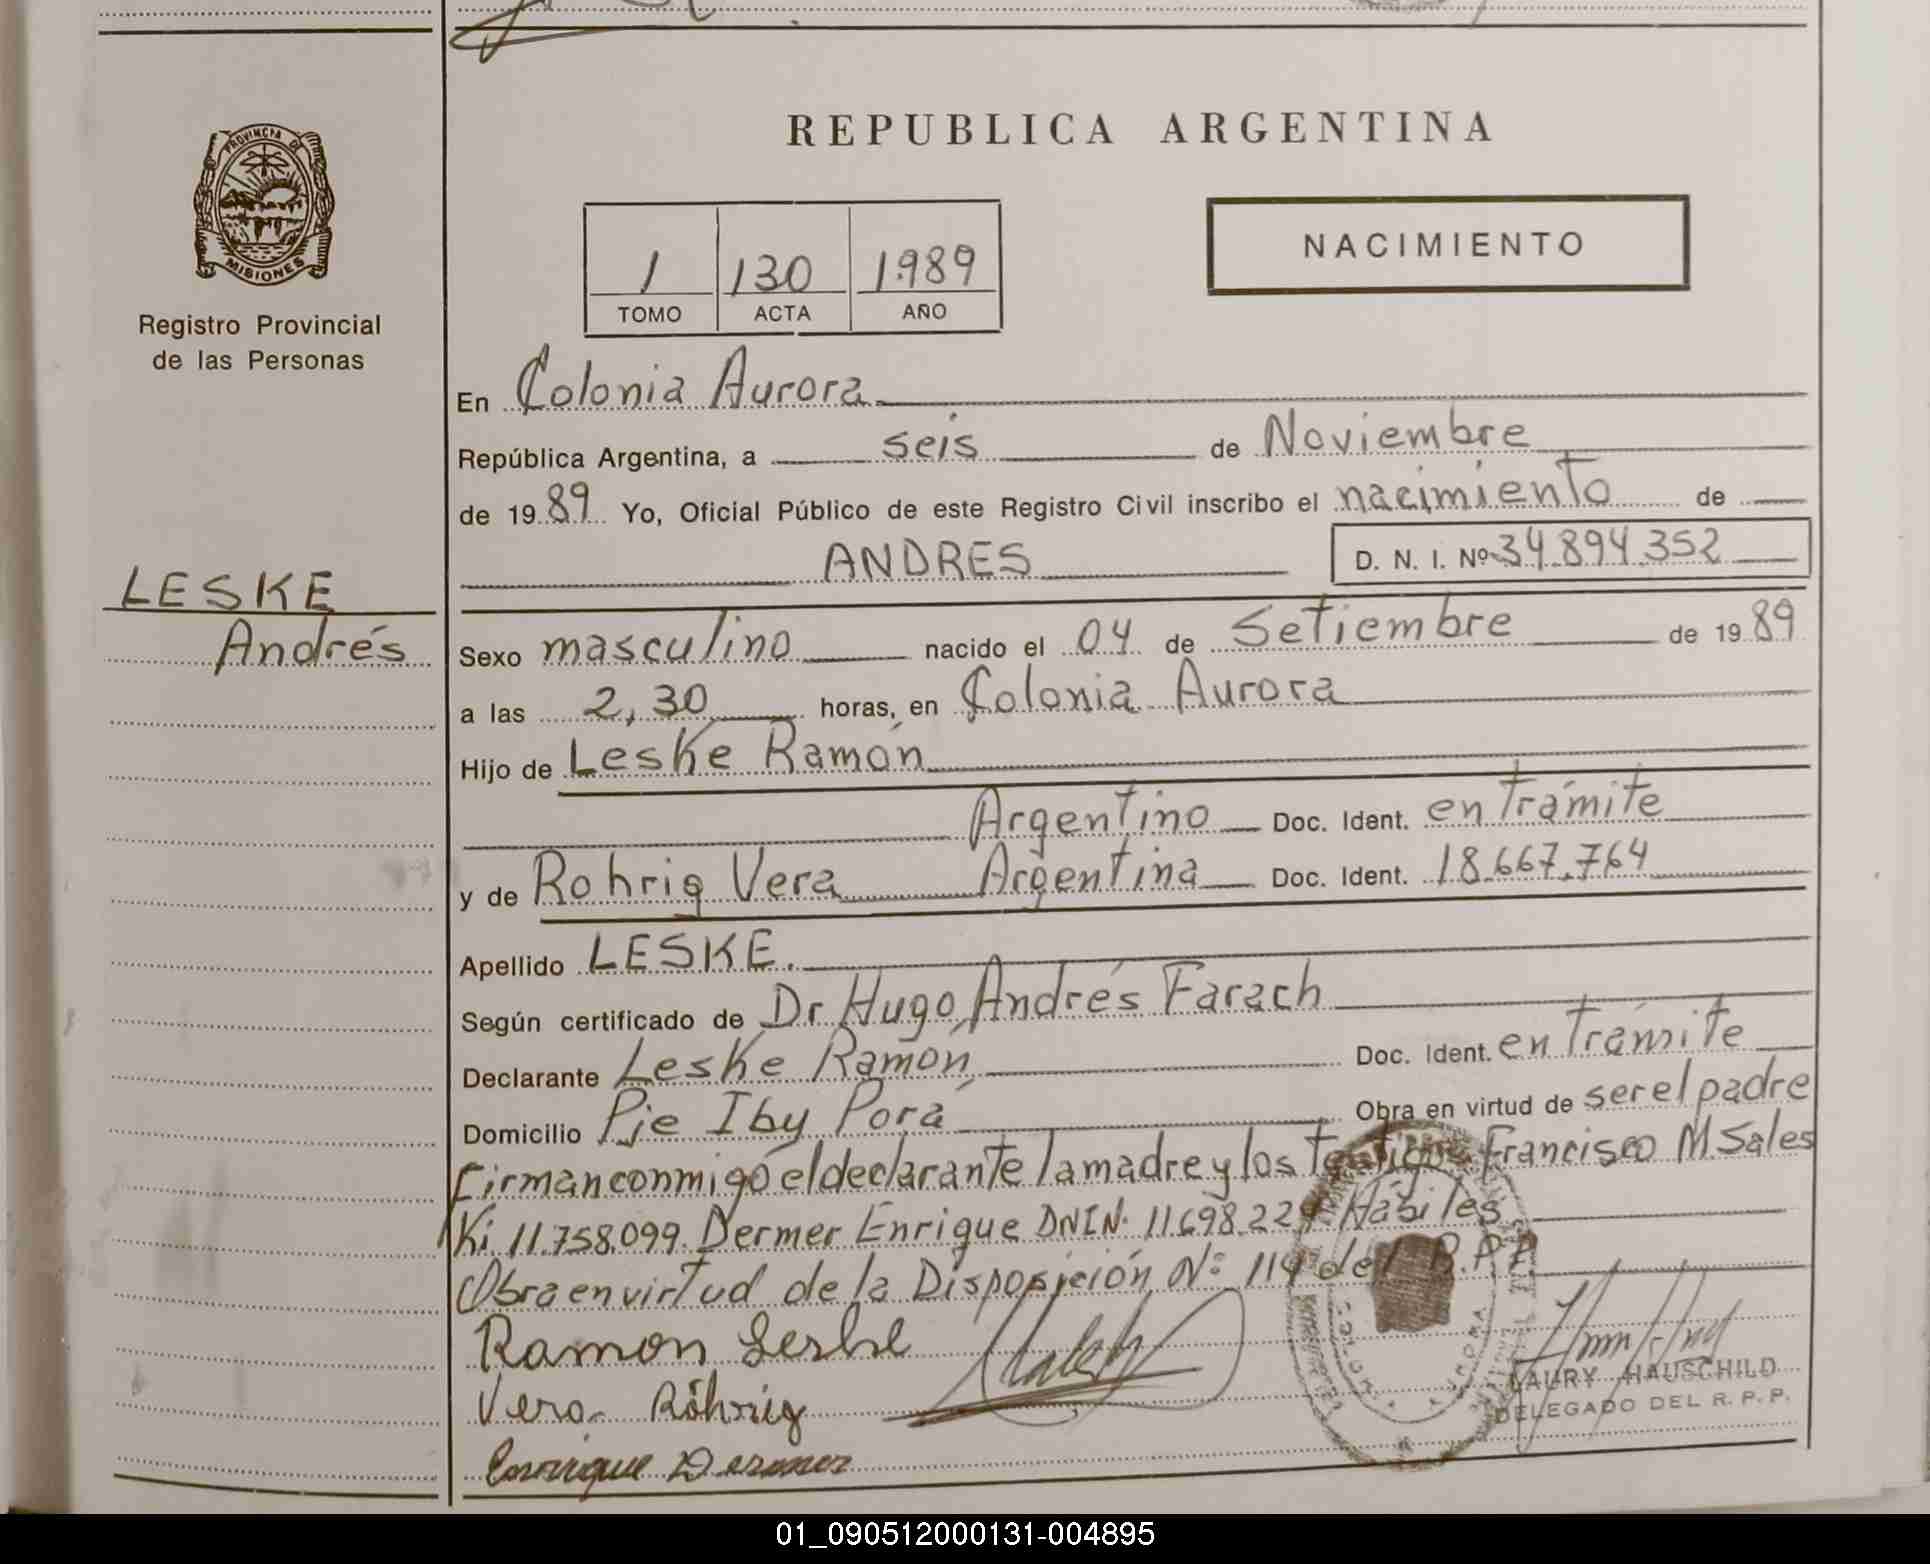 REPUBLICA ARGENTINA
PROVINCIA DE
MISIONES
Registro Provincial
de las Personas
1 130 1.989
TOMO ACTA AÑO
NACIMIENTO
En Colonia Aurora
República Argentina, a seis de Noviembre
de 19 89 Yo, Oficial Público de este Registro Civil inscribo el nacimiento de
ANDRES D. N. I. Nº 34.894.352
LESKE
Andrés
Sexo masculino nacido el 04 de Setiembre de 19 89
a las 2,30 horas, en Colonia Aurora
Hijo de Leske Ramón
Argentino Doc. Ident. en trámite
y de Rohrig Vera Argentina Doc. Ident. 18.667.764
Apellido LESKE.
Según certificado de Dr Hugo Andrés Farach
Declarante Leske Ramón Doc. Ident. en trámite
Domicilio Pje Iby Porá Obra en virtud de ser el padre
Firman conmigo el declarante la madre y los testigos Francisco M Sales
Ki 11.758.099 Dermer Enrique DNI N. 11.698.224 Hábiles
Obra en virtud de la Disposición Nº 114 del R.P.P.
Ramon Leske
Vera Röhrig
Enrique Dermer
LAURY HAUSCHILD
DELEGADO DEL R. P. P.
01_090512000131-004895